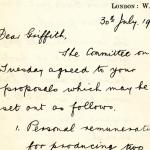 LONDON: W.
30th July, 19
Dear Griffith,
The Committee on
Tuesday agreed to your
proposals which may be
set out as follows.
1. Personal remunerat
for producing two